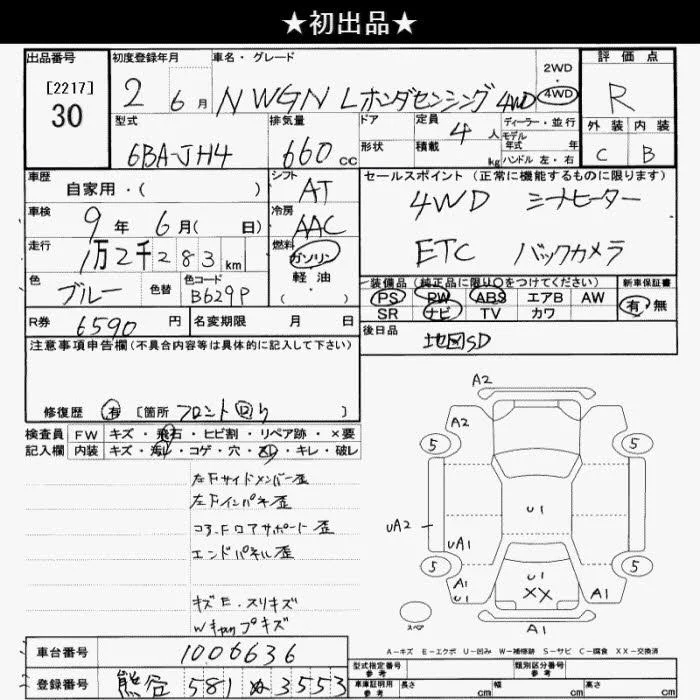 ★初出品★
出品番号 初度登録年月 車名・グレード 2WD 4WD 評価点
[2217]
30
2 6月 NWGN Lホンダセンシング 4WD R
型式 排気量 ドア 定員 ディーラー・並行
モデル
6BA-JH4 660cc 4人 年式
形状 積載 kg ハンドル 左・右
外装 内装
C B
車歴 シフト セールスポイント (正常に機能するものに限ります)
自家用・( ) AT 4WD シートヒーター
車検 冷房
9年 6月( 日) AAC
走行 燃料 ETC バックカメラ
1万2千283km ガソリン
軽・油
( )
色 色替 色コード 装備品 (純正品に限り○をつけてください) 新車保証書
ブルー B629P PS PW ABS エアB AW 有・無
SR ナビ TV カワ
R券 6590円 名変期限 月 日 後日品 地図SD
注意事項申告欄(不具合内容等は具体的に記入して下さい)
修復歴 有 [箇所 フロント回り ]
検査員 FW キズ・飛石・ヒビ割・リペア跡・×要
記入欄 内装 キズ・汚れ・コゲ・穴・・キレ・破レ
左Fサイドメンバー歪
左Fインパネ歪
コア.Fロアサポート歪
エンドパネル歪
キズE.スリキズ
Wキャップキズ
A2
A2
5 5
U1
UA2
UA1
5 5
A1
U1
U1
XX
A1
A1
スペア
A-キズ E-エクボ U-凹み W-補修跡 S-サビ C-腐食 XX-交換済
車台番号 1006636 型式指定番号 参考 類別区分番号 参考
登録番号 熊谷 581 ぬ 3553 車庫証明用 参考 長さ cm 幅 cm 高さ cm